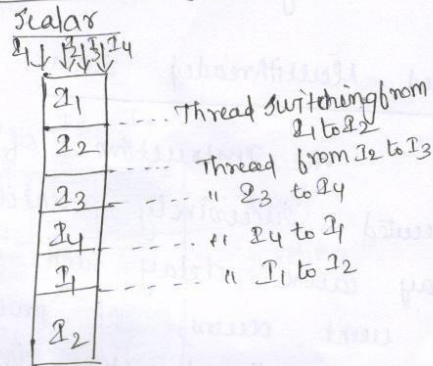 scalar
I1 I2 I3 I4
I1
Thread switching from
I1 to I2
I2
Thread from I2 to I3
I3
" I3 to I4
I4
" I4 to I1
I1
" I1 to I2
I2